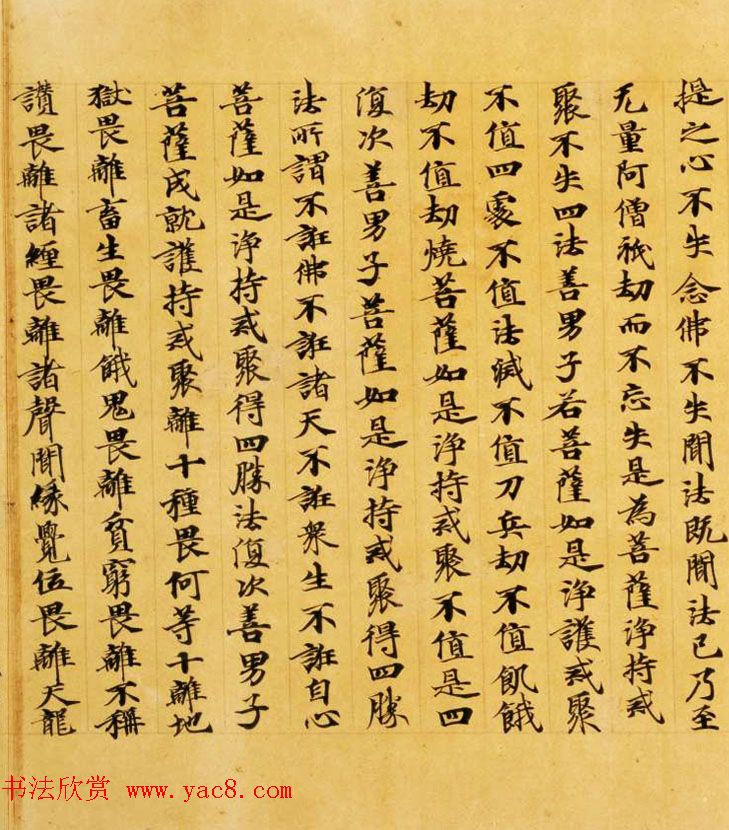 提之心不失念佛不失聞法既聞法已乃至
无量阿僧祇劫而不忘失是為菩薩淨持戒
聚不失四法善男子若菩薩如是淨護戒聚
不值四處不值法滅不值刀兵劫不值飢餓
劫不值劫燒菩薩如是淨持戒聚不值是四
復次善男子菩薩如是淨持戒聚得四勝
法所謂不誑佛不誑諸天不誑眾生不誑自心
菩薩如是淨持戒聚得四勝法復次善男子
菩薩成就護持戒聚離十種畏何等十離地
獄畏離畜生畏離餓鬼畏離貧窮畏離不稱
讚畏離諸纏畏離諸聲聞緣覺位畏離天龍
书法欣赏 www.yac8.com